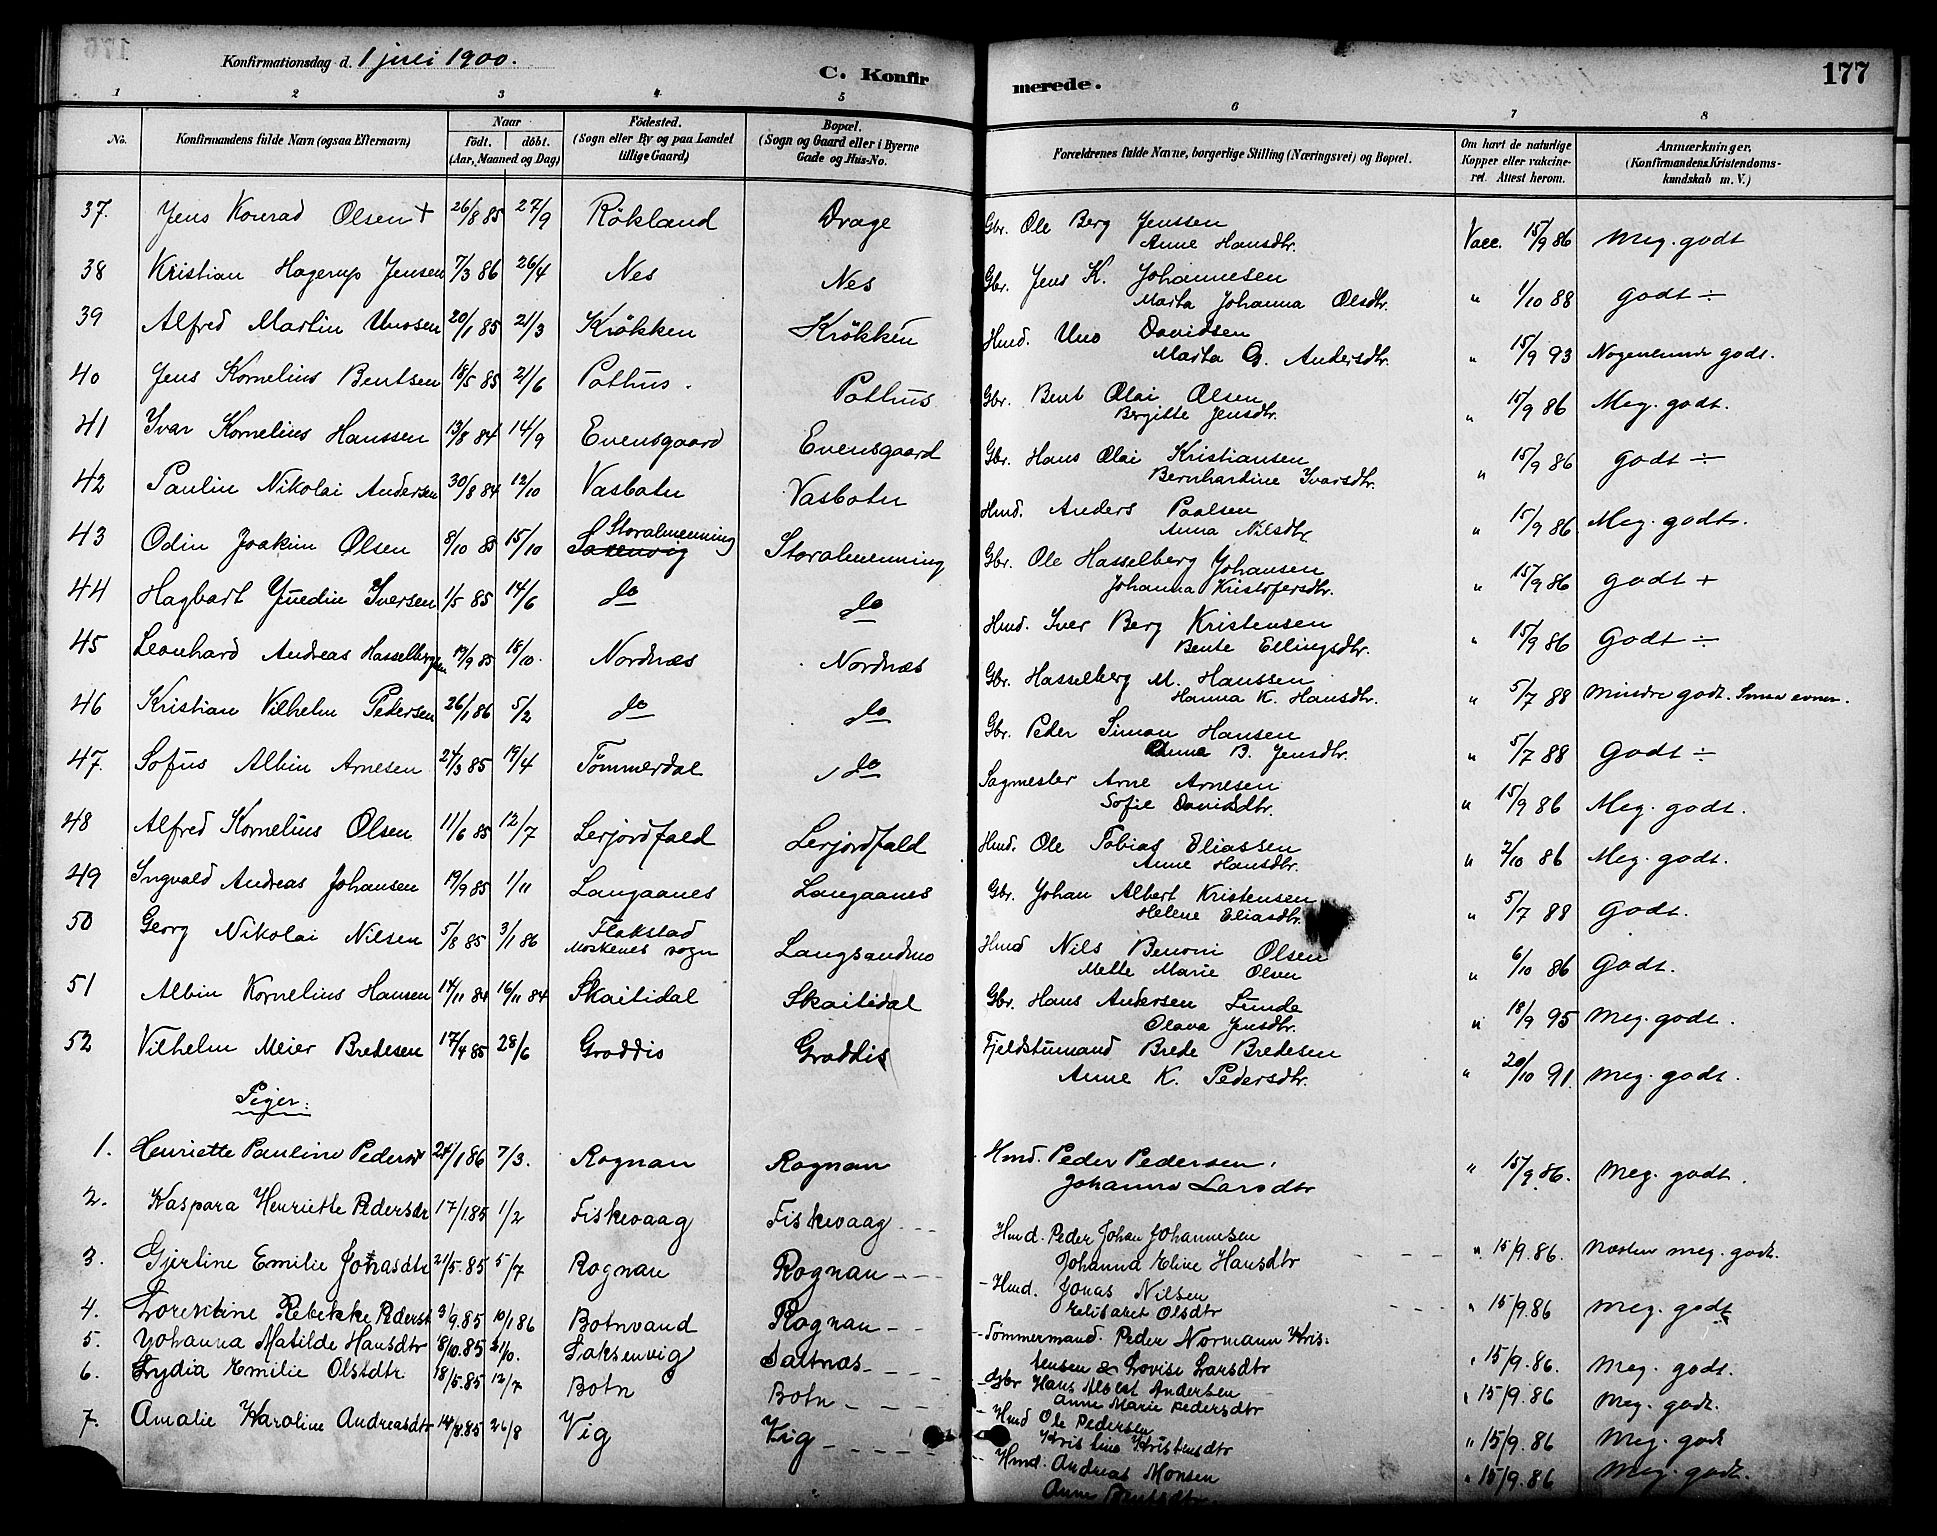 Konfirmationsdag d. 1 juli 1900.
C. Konfirmerede.
177
1 2 3 4 5 6 7 8
No. Konfirmandens fulde Navn (ogsaa Efternavn) Naar födt. döbt. (Aar, Maaned og Dag) Födested. (Sogn eller By og paa Landet tillige Gaard) Bopæl. (Sogn og Gaard eller i Byerne Gade og Hus-No. Forældrenes fulde Navne, borgerlige Stilling (Næringsvei) og Bopæl. Om havt de naturlige Kopper eller vakcineret. Attest herom. Anmærkninger. (Konfirmandens Kristendomskundskab m. V.)
37. Jens Konrad Olsen + 26/8 85 27/9 Rökland Drage Gbr. Ole Berg Jenssen Vacc. 15/9 86 Meg. godt
Anne Hansdtr.
38 Kristian Hagerup Jensen 7/3 86 26/4 Nes Nes Gbr. Jens K. Johannesen " 1/10 88 godt ÷
Marta Johanna Olsdtr.
39 Alfred Martin Unosen 20/1 85 21/3 Krökken Krökken Hmd. Uno Davidsen " 15/9 93 Nogenlunde godt.
Marta G. Andersdtr.
40 Jens Kornelius Bentsen 18/5 85 21/6 Pothus. Pothus Gbr. Bent Olai Olsen " 15/9 86 Meg. godt.
Bergitte Jensdtr.
41 Ivar Kornelius Hanssen 13/8 84 14/9 Evensgaard Evensgaard Gbr. Hans Olai Kristiansen " 15/9 86 godt ÷
Bernhardine Ivarsdtr.
42 Paulin Nikolai Andersen 30/8 84 12/10 Vasbotn Vasbotn Hmd. Anders Paalsen " 15/9 86 Meg. godt.
Anna Nilsdtr.
43 Odin Joakim Olsen 8/10 85 15/10 Storalmenning Saxenvig Storalmenning Gbr. Ole Hasselberg Johansen " 15/9 86 godt +
Johanna Kristofersdtr.
44 Hagbart Juedin Iversen 1/5 85 14/6 do do Hmd. Iver Berg Kristensen " 15/9 86 Godt ÷
Bente Ellingsdtr.
45 Leonhard Andreas Hasselbergsen 17/9 85 18/10. Nordnæs Nordnæs Gbr. Hasselberg M. Hanssen " 5/7 88 mindre godt. Smaa evner.
Hanna K. Hansdtr.
46 Kristian Vilhelm Pedersen 26/1 86 5/2 do do Gbr. Peder Simon Hansen " 5/7 88 Godt ÷
Anna B. Jensdtr.
47. Sofus Albin Arnesen 24/3 85 19/4 Tömmerdal do Sagmester Arne Arnesen " 15/9 86 Meg. godt.
Sofie Davidsdtr.
48 Alfred Kornelius Olsen 11/6 85 12/7 Lerjordfald Lerjordfald Hmd. Ole Tobias Eliassen " 2/10 86 Meg. godt.
Anne Hansdtr.
49 Ingvald Andreas Johansen 19/9 85 1/11 Langaanes Langaanes Gbr. Johan Albert Kristensen " 5/7 88 Godt.
Helene Eliasdtr.
50 Georg Nikolai Nilsen 5/8 85 3/1 86 Flakstad Moskenes sogn Langsandmo Hmd Nils Benoni Olsen " 6/10 86 Godt.
Mette Marie Olsen
51 Albin Kornelius Hansen 14/11 84 16/11 84 Skaitidal Skaitidal Gbr. Hans Andersen Lunde " 18/9 95 Meg. godt.
Olava Jensdtr.
52 Vilhelm Meier Bredesen 17/4 85 28/6 Graddis Graddis Fjeldstumand Brede Bredesen " 20/10 91. Meg. godt.
Anne K. Pedersdtr.
Piger:
1. Henriette Pauline Pedersdt 24/1 86 7/3. Rognan Rognan Hmd. Peder Pedersen. " 15/9 86. Meg. godt.
Johanna Larsdtr
2. Kaspara Henriette Pedersdtr 17/1 85 1/2 Fiskevaag Fiskevaag Hmd. Peder Johan Johannesen " 15/9. 86. Næsten meg. godt.
Johanna Eline Hansdtr
3. Gjertine Emilie Jonasdtr 21/5. 85 5/7 Rognan Rognan Hmd. Jonas Nilsen " 15/9. 86 Meg. godt
Elisabet Olsdtr
4. Lorentine Rebekke Pederst 3/9. 85 10/1 86 Botnvand Rognan Tommermand. Peder Normann Kristensen & Lovise Larsdtr " 15/9. 86. Meg. godt.
5. Johanna Matilde Hansdtr 8/10. 85 Saksenvig Saltnæs Gbr Hans Albert Andersen " 15/9. 86 Meg. godt.
Anne Marie Pedersdtr
6. Lydia Emilie Olsdtr 18/5. 85 12/7 Botn Botn Hmd Ole Pedersen " 15/9. 86 Meg. godt
Kristine Kristensdtr
7. Amalie Karoline Andreasdtr 14/8. 85 26/8 Vig Vig Hmd. Andreas Monsen " 15/9. 86 Meg. godt.
Anne Bentsdtr.